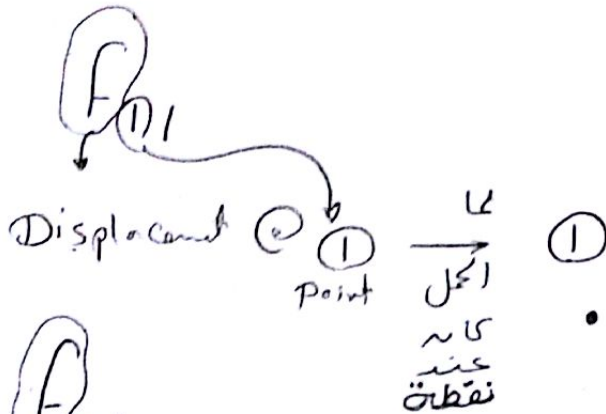 F11
Displacemnt @ ① → ①
Point
لما
الحمل
كان
عند
نقطة
F